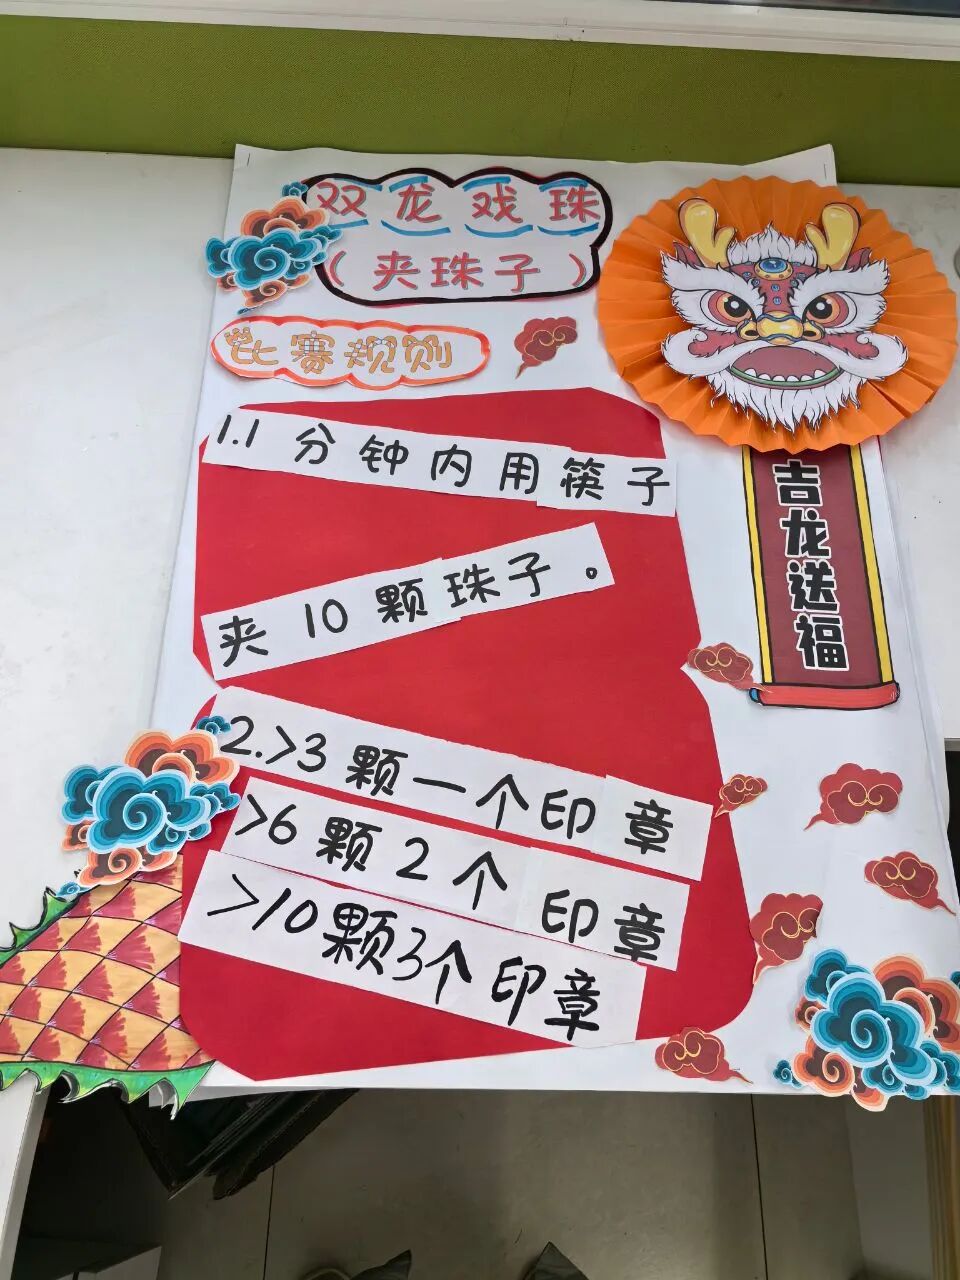 双龙戏珠
（夹珠子）
比赛规则
1.1分钟内用筷子
夹10颗珠子。
2.>3颗一个印章
>6颗2个印章
>10颗3个印章
吉龙送福